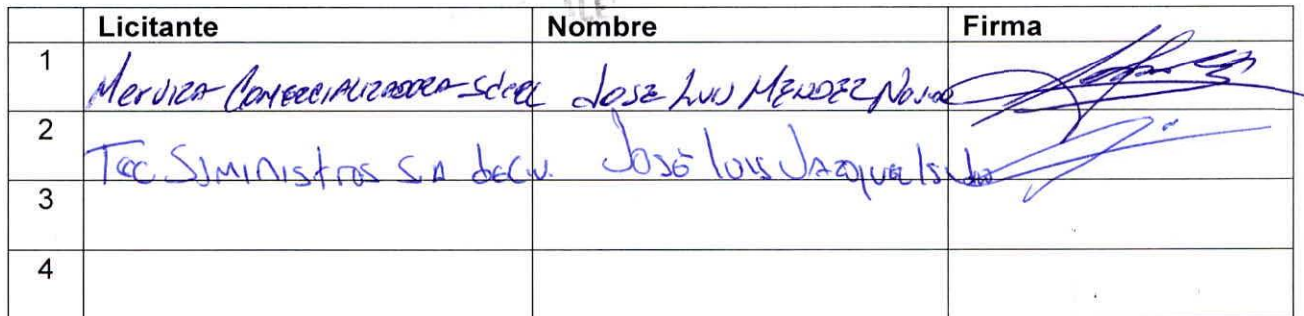 Licitante Nombre Firma
1 Merviza Comercializadora S de RL José Luis Méndez
2 Tec Suministros S.A de C.V. José Luis Vázquez
3
4